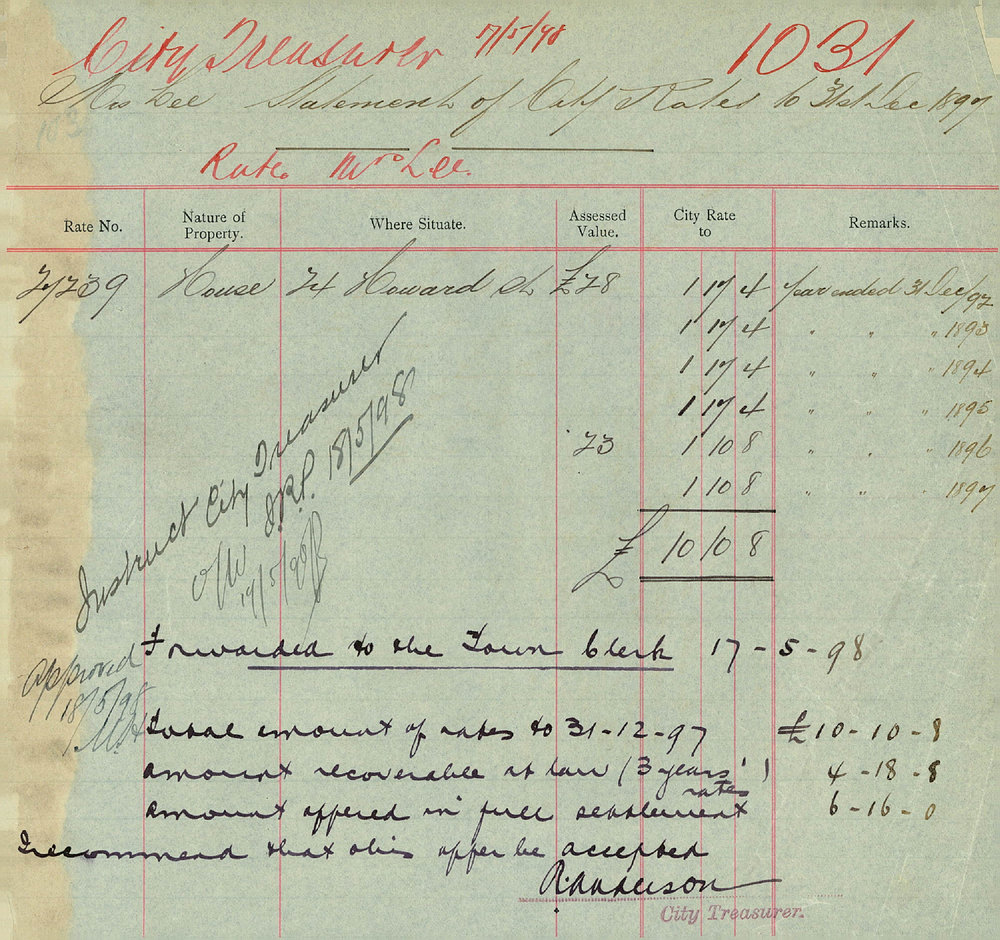 City Treasurer 17/5/98 1031
Mrs Lee Statement of City Rates to 31st Dec 1897
Rate. Mrs Lee.
Rate No. Nature of Property. Where Situate. Assessed Value. City Rate to Remarks.
House 24 Howard St £28 1 17 4 Year ended 31 Dec/92
1 17 4 " " " 1893
1 17 4 " " " 1894
1 17 4 " " " 1895
23 1 10 8 " " " 1896
1 10 8 " " 1897
£ 10 10 8
Instruct City Treasurer
18/5/98
19/5/98
Forwarded to the Town Clerk 17-5-98
Approved
18/5/98
Total amount of rates to 31-12-97 £10-10-8
amount recoverable at law (3 years' rates) 4-18-8
amount offered in full settlement 6-16-0
I recommend that this offer be accepted
R. Anderson
City Treasurer.